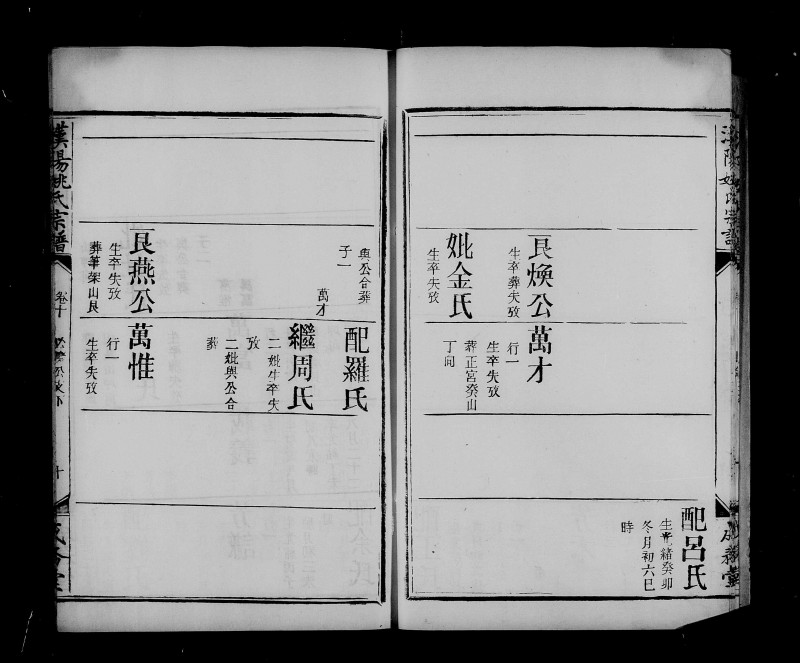 配呂氏
生光緒癸卯
冬月初六巳
時
艮煥公
生卒葬失攷
妣金氏
生卒失攷
萬才
行一
生卒失攷
葬正宮癸山
丁向
與公合葬
子一
萬才
配羅氏
繼周氏
二妣生卒失
攷
二妣與公合
葬
艮燕公
生卒失攷
葬筆架山艮
萬惟
行一
生卒失攷
漢陽姚氏宗譜
卷十
十